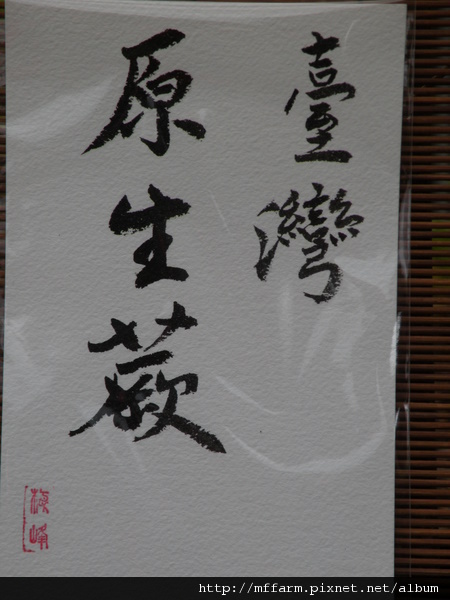 臺灣
原生蕨
梅峰
http://mffarm.pixnet.net/album